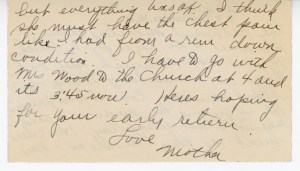 but everything
she must have the chest pain
like I had from a run down
condition. I have to go with
Mrs Wood to the Church at 4 and
its 3:45 now. Heres hoping
for your early return.
Love
Mother